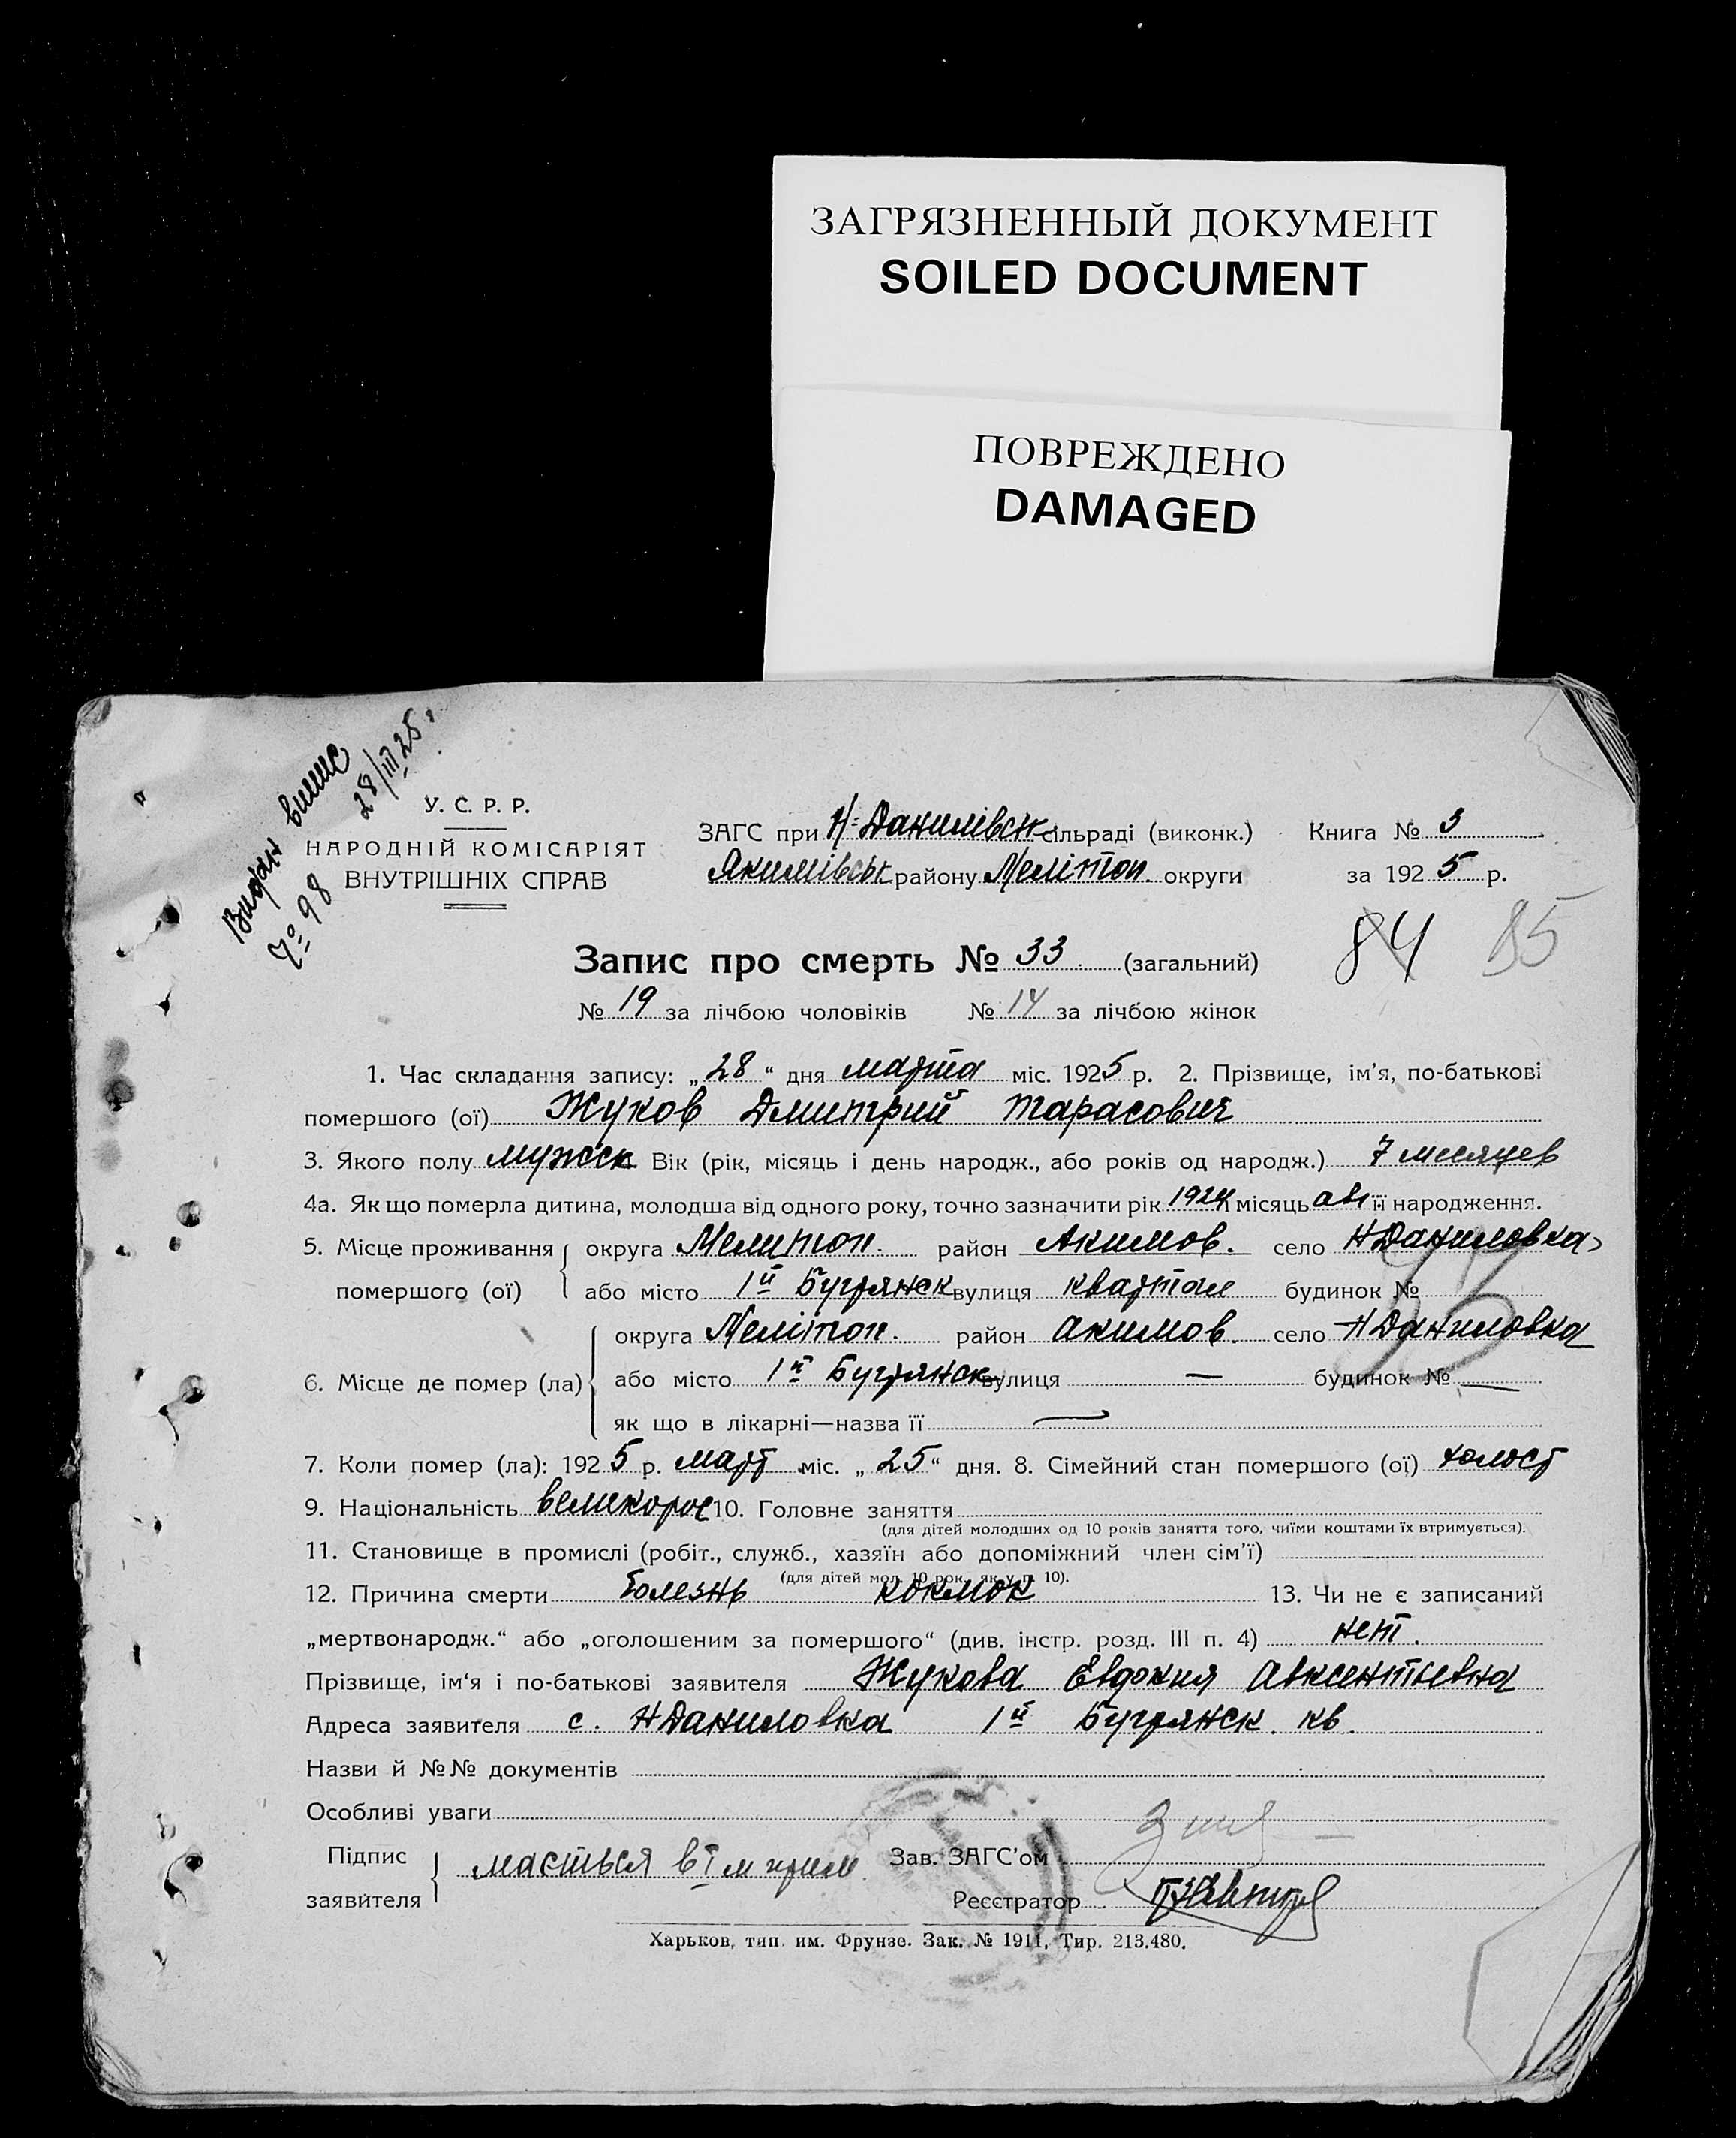 ЗАГРЯЗНЕННЫЙ ДОКУМЕНТ
SOILED DOCUMENT
ПОВРЕЖДЕНО
DAMAGED
Видан випис
№ 98 28/III 25
У. С. Р. Р.
НАРОДНІЙ КОМІСАРІЯТ
ВНУТРІШНІХ СПРАВ
ЗАГС при Н-Данилівск сільраді (виконк.) Книга № 3
Якимівськ району Мелітоп. округи за 1925 р.
84 85
Запис про смерть № 33 (загальний)
№ 19 за лічбою чоловіків № 14 за лічбою жінок
1. Час складання запису: „28“ дня марта міс. 1925 р. 2. Прізвище, ім'я, по-батькові
помершого (ої) Жуков Дмитрий Тарасович
3. Якого полу мужск Вік (рік, місяць і день народж., або років од народж.) 7 месяцев
4а. Як що померла дитина, молодша від одного року, точно зазначити рік 1924 місяць авг її народження.
5. Місце проживання округа Мелитоп. район Акимов. село Н Даниловка
помершого (ої) або місто 1й вулиця квартал будинок №
округа Мелітоп. район Акимов. село Н Даниловка
6. Місце де помер (ла) або місто 1й вулиця — будинок № —
як що в лікарні—назва її —
7. Коли помер (ла): 1925 р. март міс. „25“ дня. 8. Сімейний стан помершого (ої) холост
9. Національність великорос 10. Головне заняття
(для дітей молодших од 10 років заняття того, чиїми коштами їх втримується).
11. Становище в промислі (робіт., служб., хазяїн або допоміжний член сім'ї)
(для дітей мол. 10 рок. як у п. 10).
12. Причина смерти болезнь коклюк 13. Чи не є записаний
„мертвонародж.“ або „оголошеним за помершого“ (див. інстр. розд. III п. 4) нет.
Прізвище, ім'я і по-батькові заявителя Жукова Евдокия Авксентьевна
Адреса заявителя с. Н Даниловка 1й кв.
Назви й №№ документів
Особливі уваги
Підпис мається в І м прим Зав. ЗАГС'ом
заявителя Реєстратор
Харьков, тип. им. Фрунзе. Зак. № 1911, Тир. 213.480.